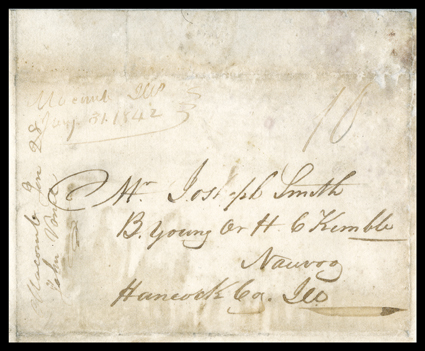 Macomb Ills
Jany 31 1842
10
Mr Joseph Smith
B. Young Or H C Kemble
Nauvoo
Hancock Co. Ills
Macomb
John